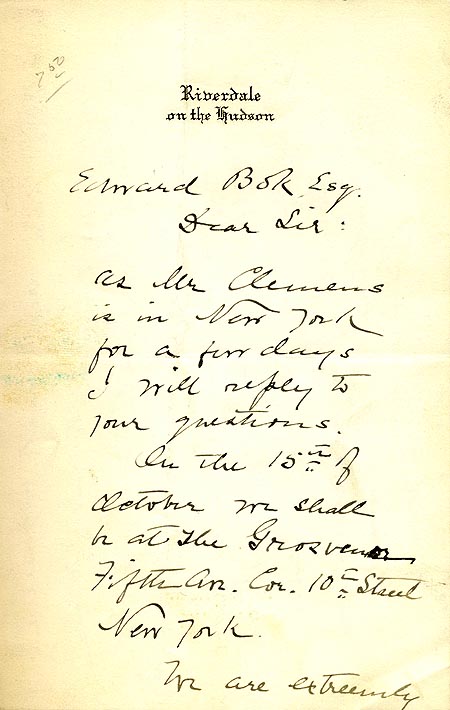 7 50
Riverdale
on the Hudson
Edward Bok Esq.
Dear Sir:
as Mr Clemens
is in New York
for a few days
I will reply to
your questions.
On the 15th of
October we shall
be at The Grosvenor
Fifth Ave. Cor. 10th Street
New York.
We are extreemly